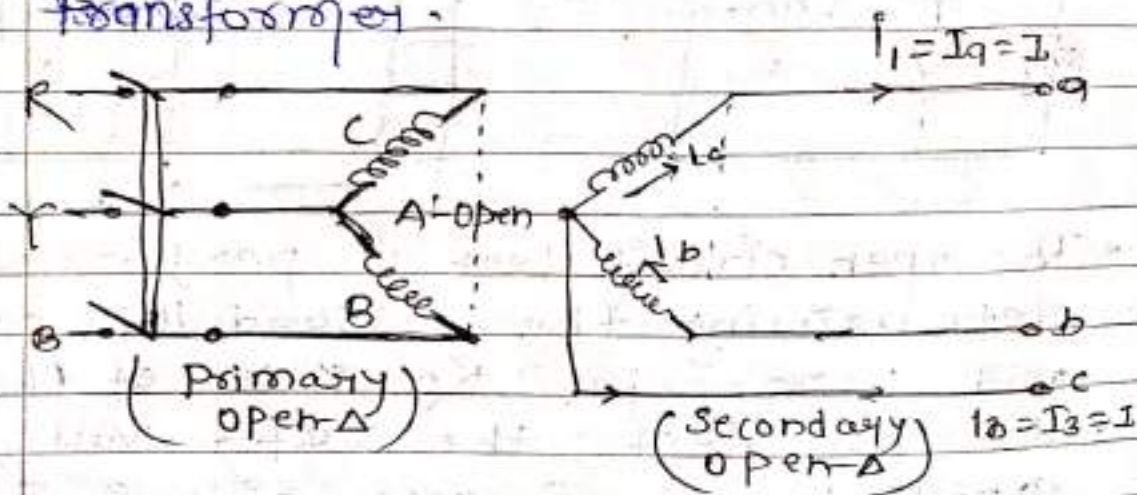 transformer.
i₁ = Ia = I
R
a
C
Ic
Y
A-open
Ib
B
B
b
c
(Primary open-Δ)
(Secondary open-Δ)
Ib = I3 = I